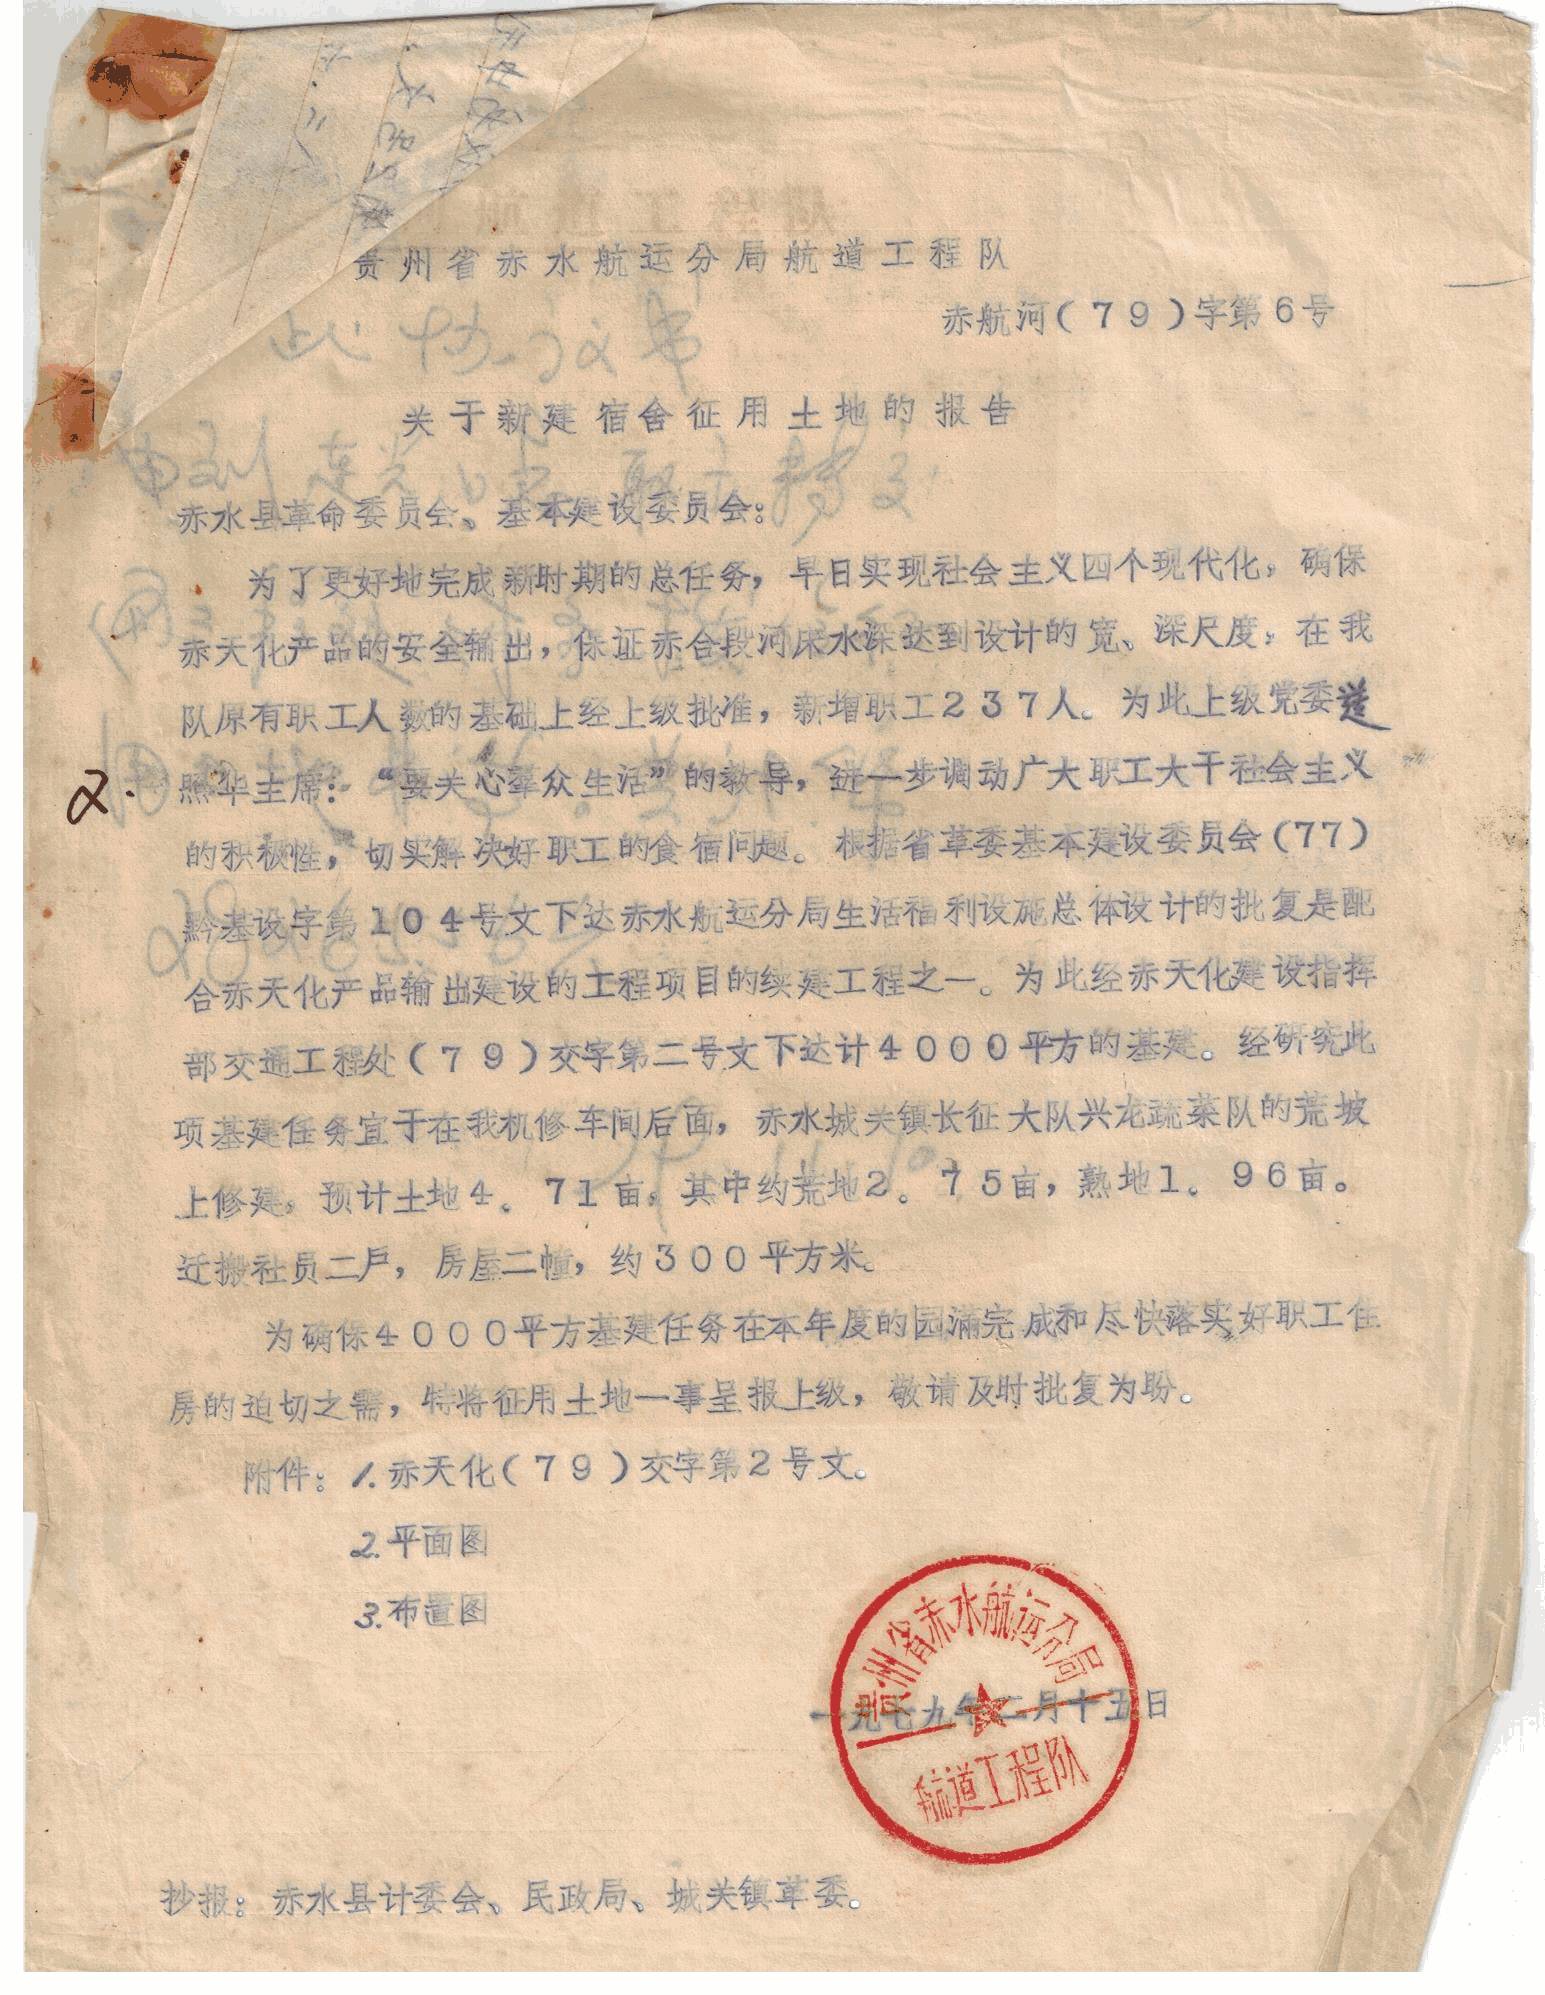 贵州省赤水航运分局航道工程队
赤航河(79)字第6号
此协议书
关于新建宿舍征用土地的报告
赤水县革命委员会、基本建设委员会:
为了更好地完成新时期的总任务,早日实现社会主义四个现代化,确保
赤天化产品的安全输出,保证赤合段河床水深达到设计的宽、深尺度,在我
队原有职工人数的基础上经上级批准,新增职工237人。为此上级党委遵
2.
照华主席:“要关心羣众生活”的教导,进一步调动广大职工大干社会主义
的积极性,切实解决好职工的食宿问题。根据省革委基本建设委员会(77)
黔基设字第104号文下达赤水航运分局生活福利设施总体设计的批复是配
合赤天化产品输出建设的工程项目的续建工程之一。为此经赤天化建设指挥
部交通工程处(79)交字第二号文下达计4000平方的基建。经研究此
项基建任务宜于在我机修车间后面,赤水城关镇长征大队兴龙蔬菜队的荒坡
上修建,预计土地4。71亩,其中约荒地2。75亩,熟地1。96亩。
迁搬社员二戶,房屋二幢,约300平方米。
为确保4000平方基建任务在本年度的园满完成和尽快落实好职工住
房的迫切之需,特将征用土地一事呈报上级,敬请及时批复为盼。
附件:1.赤天化(79)交字第2号文。
2.平面图
3.布置图
贵州省赤水航运分局
一九七九年二月十五日
航道工程队
抄报:赤水县计委会、民政局、城关镇革委。